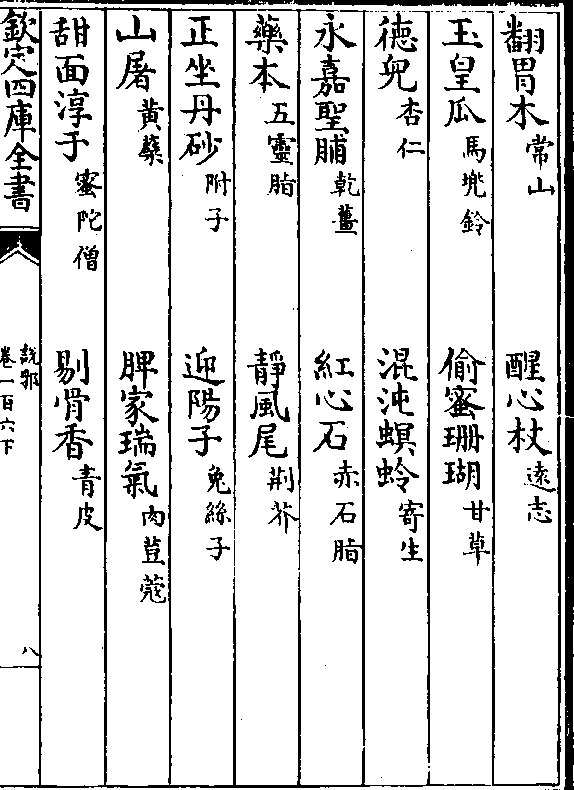 翻胃木常山　醒心杖逺志
玉皇瓜馬兠鈴　偷蜜珊瑚甘草
徳兒杏仁　混沌螟蛉寄生
永嘉聖脯乾薑　紅心石赤石脂
藥本五靈脂　静風尾荆芥
正坐丹砂附子　迎陽子兔絲子
山屠黄蘗　脾家瑞氣肉荳蔻
甜面淳于蜜陀僧　剔骨香青皮
欽定四庫全書　說郛卷一百六下　八